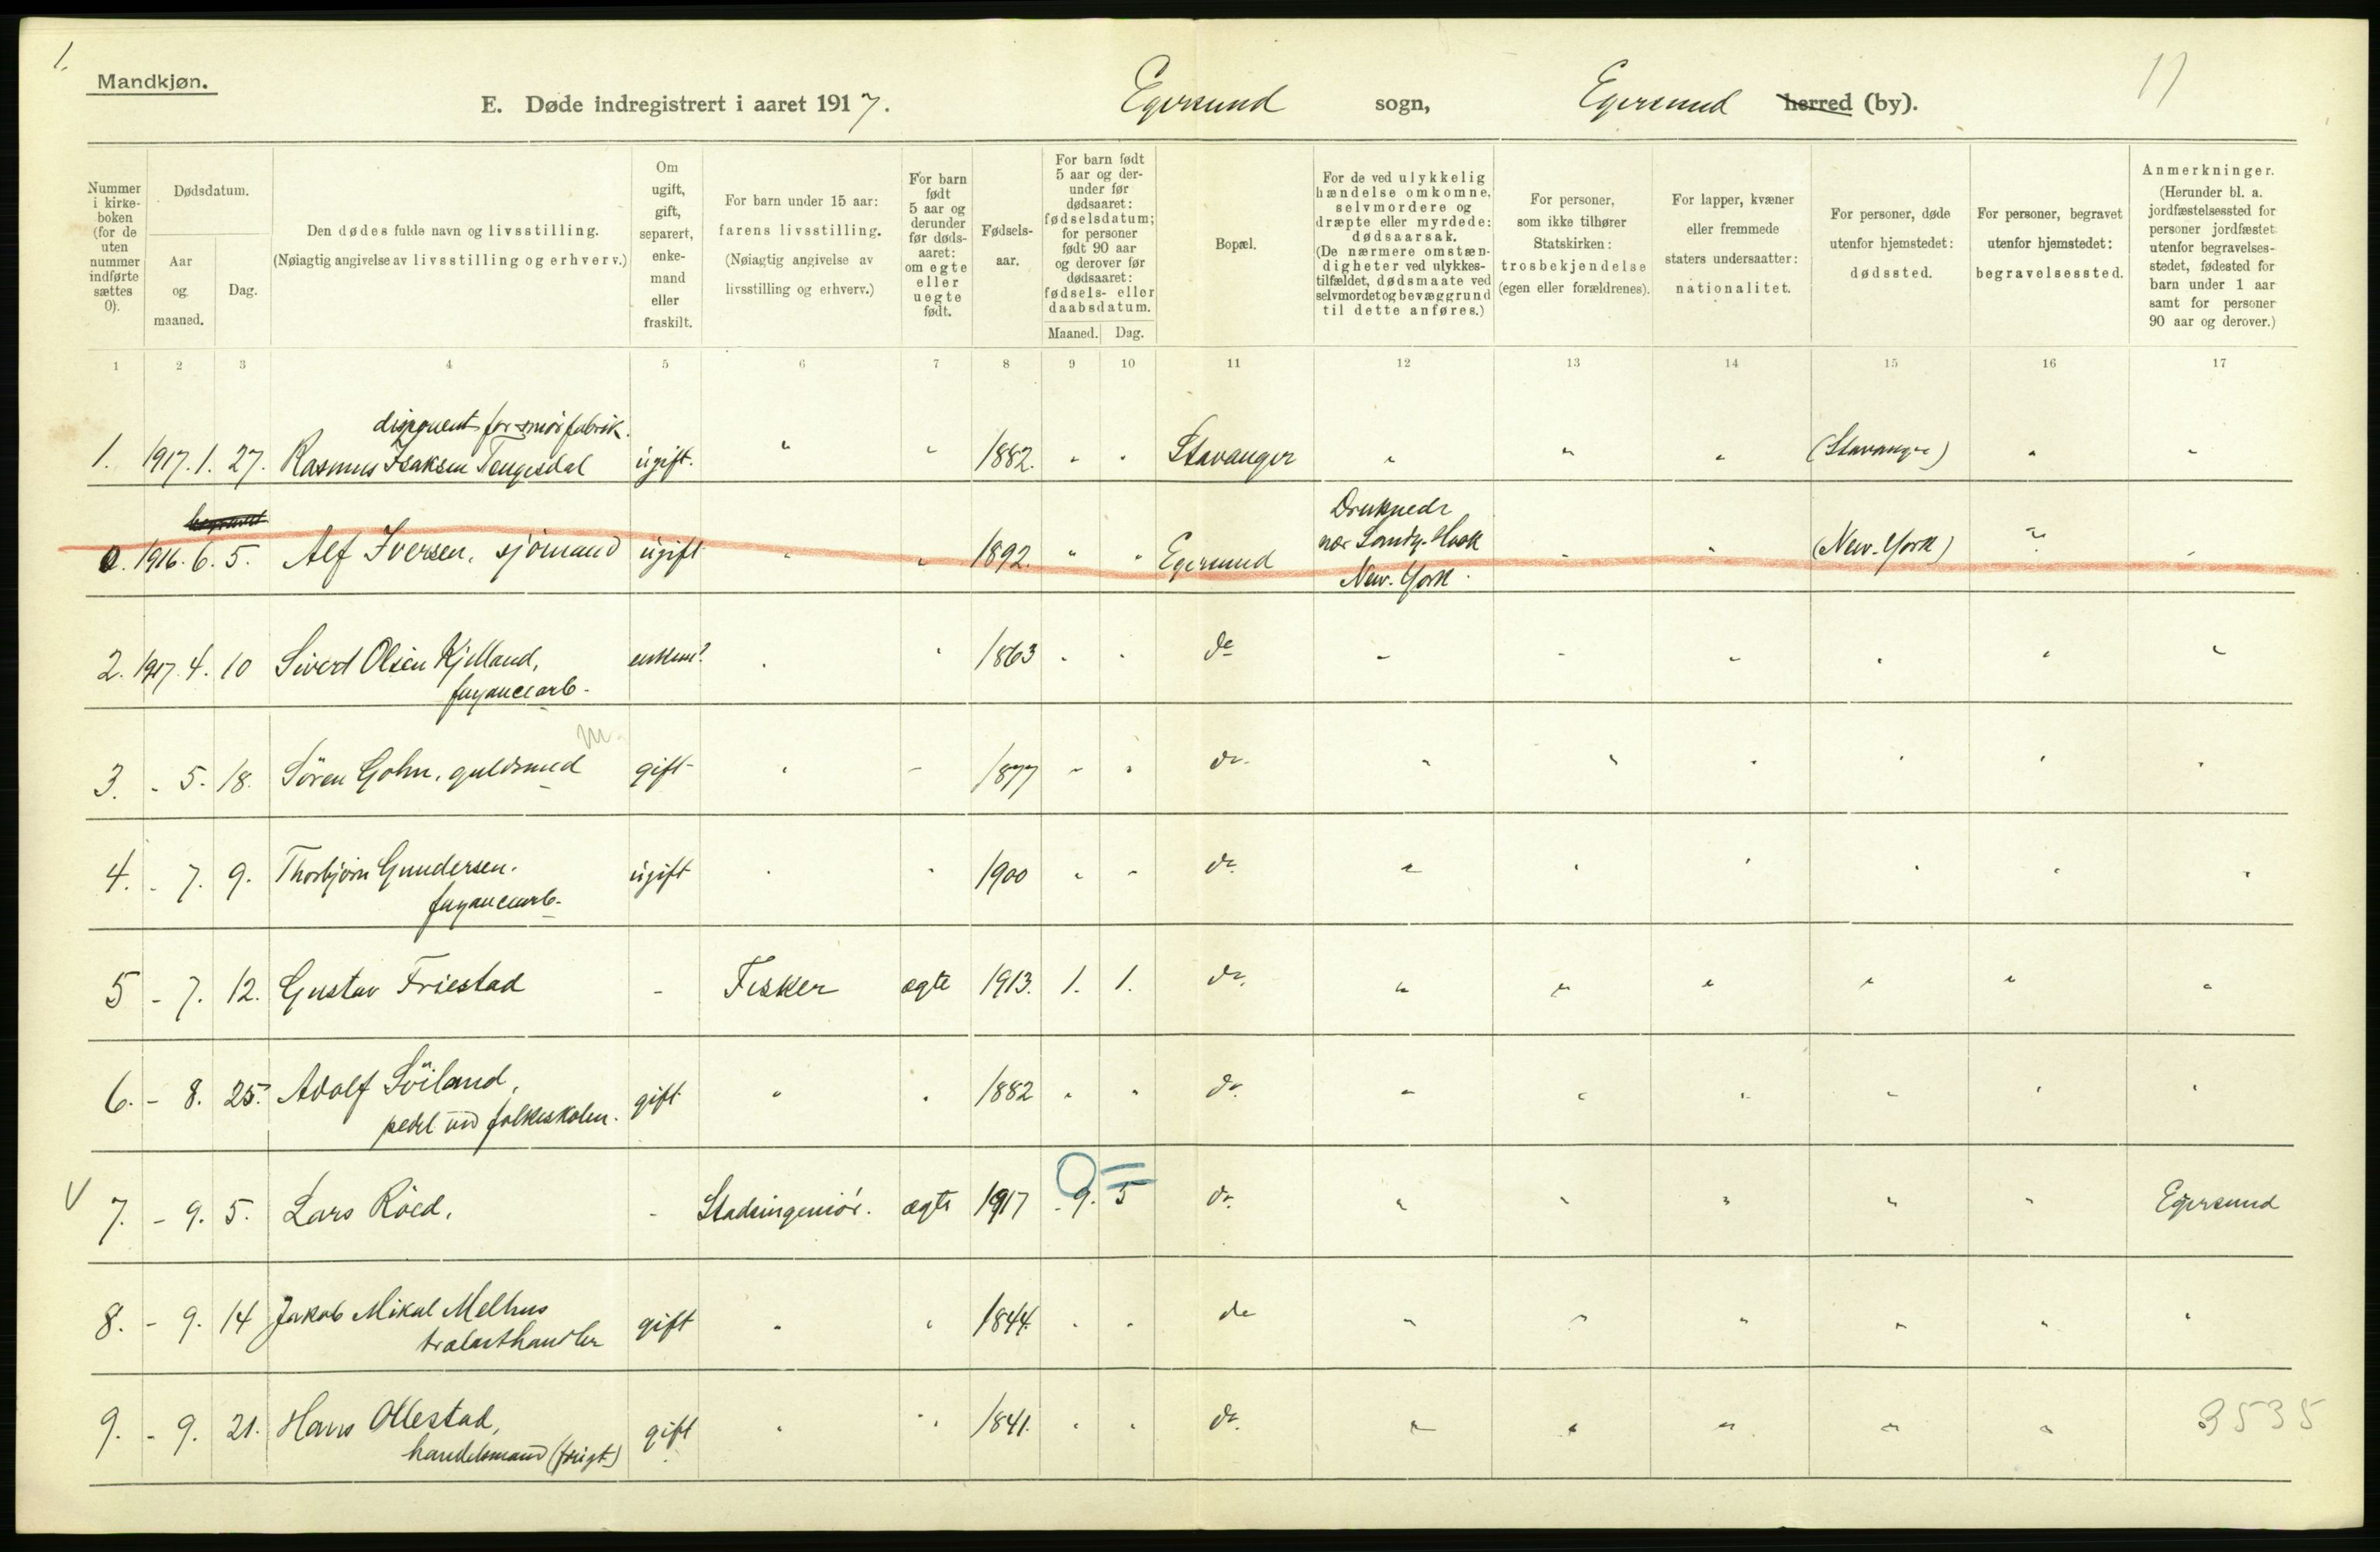 1.
Mandkjøn.
E. Døde indregistrert i aaret 1917. Egersund sogn, Egersund herred (by). 11
Nummer i kirke-boken (for de uten nummer indførte sættes 0).
Dødsdatum.
Aar og maaned.
Dag.
Den dødes fulde navn og livsstilling.
(Nøiagtig angivelse av livsstilling og erhverv.)
Om ugift, gift, separert, enke-mand eller fraskilt.
For barn under 15 aar:
farens livsstilling.
(Nøiagtig angivelse av
livsstilling og erhverv.)
For barn født 5 aar og derunder før døds-aaret: om egte eller uegte født.
Fødsels-aar.
For barn født 5 aar og der-under før dødsaaret: fødselsdatum; for personer født 90 aar og derover før dødsaaret: fødsels- eller daabsdatum.
Maaned. Dag.
Bopæl.
For de ved ulykkelig
hændelse omkomne,
selvmordere og
dræpte eller myrdede:
dødsaarsak.
(De nærmere omstæn-
digheter ved ulykkes-
tilfældet, dødsmaate ved
selvmordet og bevæggrund
til dette anføres.)
For personer,
som ikke tilhører
Statskirken:
trosbekjendelse
(egen eller forældrenes).
For lapper, kvæner
eller fremmede
staters undersaatter:
nationalitet.
For personer, døde
utenfor hjemstedet:
dødssted.
For personer, begravet
utenfor hjemstedet:
begravelsessted.
Anmerkninger.
(Herunder bl. a.
jordfæstelsessted for
personer jordfæstet
utenfor begravelses-
stedet, fødested for
barn under 1 aar
samt for personer
90 aar og derover.)
1 2 3 4 5 6 7 8 9 10 11 12 13 14 15 16 17
disponent for smørfabrik.
1. 1917. 1. 27. Rasmus Isaksen Tengesdal ugift. " " 1882. " " Stavanger " " " (Stavanger) " "
0. 1916. 6. 5. Alf Iversen, sjömand ugift " " 1892. " " Egersund Druknede nær Sandy-Hook New-York. " " (New-York) ? "
2. 1917. 4. 10 Sivert Olsen Kjelland, enkem. " " 1863 " " do " " " " " "
fayancearb.
m.
3. - 5. 18. Sören Gohn, guldsmed gift " " 1877 " " do. " " " " " "
4. - 7. 9. Thorbjörn Gundersen. ugift " " 1900 " " do. " " " " " "
fayancearb.
5 - 7. 12. Gustav Friestad - Fisker ægte 1913. 1. 1. do. " " " " " "
6. - 8. 25. Adolf Söiland, gift " " 1882 " " do. " " " " " "
pedel ved folkeskolen.
V 7. - 9. 5. Lars Röed, - Stadsingeniör. ægte 1917 - 9. 5 do. " " " " " Egersund
8. - 9. 14 Jakob Mikal Melhus gift " " 1844. " " do " " " " " "
trælasthandler
9. - 9. 21. Hans Ollestad, gift " " 1841. " " do. " " " " " 3535
handelsmand